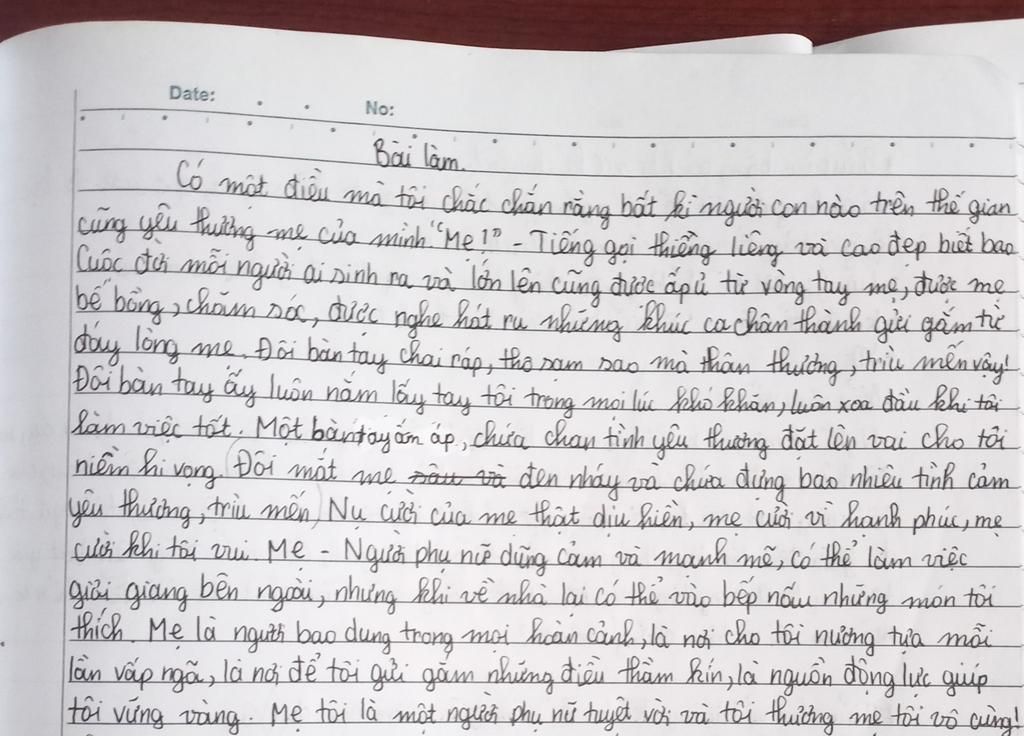 Date:
No:
Bài làm.
Có một điều mà tôi chắc chắn rằng bất kì người con nào trên thế gian
cũng yêu thương mẹ của mình. "Mẹ!" - Tiếng gọi thiềng liêng và cao đẹp biết bao.
Cuộc đời mỗi người ai sinh ra và lớn lên cũng được ấp ủ từ vòng tay mẹ, được mẹ
bế bồng, chăm sóc, được nghe hát ru những khúc ca chân thành gửi gắm từ
đáy lòng mẹ. Đôi bàn tay chai ráp, thô sam sao mà thân thương, trìu mến vậy!
Đôi bàn tay ấy luôn nắm lấy tay tôi trong mọi lúc khó khăn, luôn xoa đầu khi tôi
làm việc tốt. Một bàn tay ấm áp, chứa chan tình yêu thương đặt lên vai cho tôi
niềm hi vọng. (Đôi mắt mẹ đen nháy và chứa đựng bao nhiêu tình cảm
yêu thương, trìu mến) Nụ cười của mẹ thật dịu hiền, mẹ cười vì hạnh phúc, mẹ
cười khi tôi vui. Mẹ - Người phụ nữ dũng cảm và mạnh mẽ, có thể làm việc
giỏi giang bên ngoài, nhưng khi về nhà lại có thể vào bếp nấu những món tôi
thích. Mẹ là người bao dung trong mọi hoàn cảnh, là nơi cho tôi nương tựa mỗi
lần vấp ngã, là nơi để tôi gửi gắm những điều thầm kín, là nguồn động lực giúp
tôi vững vàng. Mẹ tôi là một người phụ nữ tuyệt vời và tôi thương mẹ tôi vô cùng!